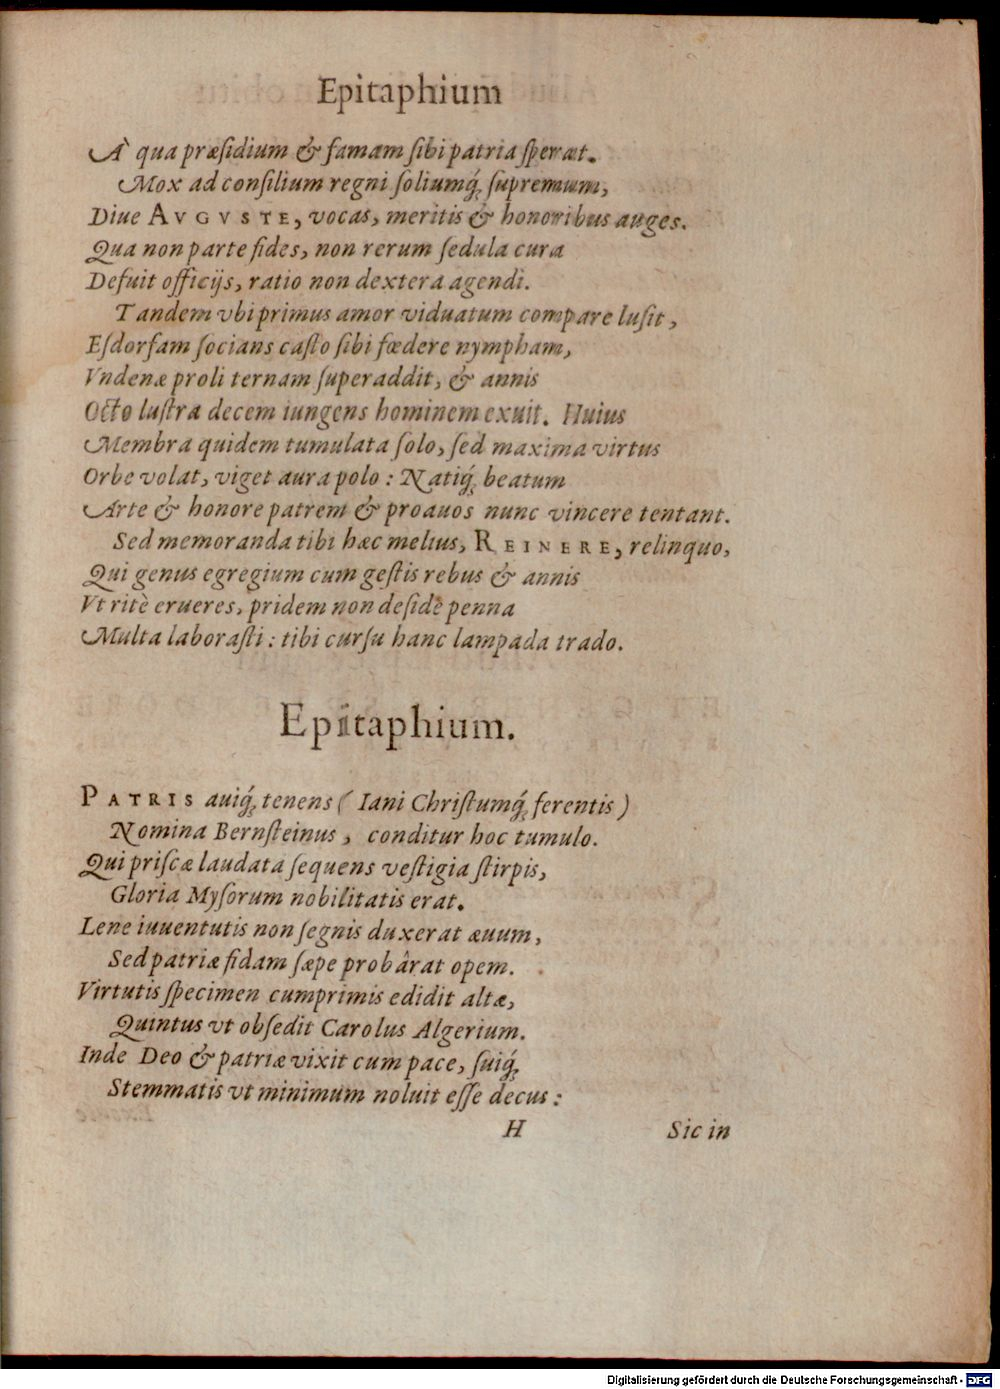 Epitaphium
À qua præsidium & famam sibi patria sperat.
Mox ad consilium regni soliumq́; supremum,
Diue AVGVSTE, vocas, meritis & honoribus auges.
Qua non parte fides, non rerum sedula cura
Defuit officijs, ratio non dextera agendi.
Tandem vbi primus amor viduatum compare lusit,
Esdorfam socians casto sibi fœdere nympham,
Vndenæ proli ternam superaddit, & annis
Octo lustra decem iungens hominem exuit. Huius
Membra quidem tumulata solo, sed maxima virtus
Orbe volat, viget aura polo: Natiq́; beatum
Arte & honore patrem & proauos nunc vincere tentant.
Sed memoranda tibi hæc melius, REINERE, relinquo,
Qui genus egregium cum gestis rebus & annis
Vt ritè erueres, pridem non deside penna
Multa laborasti: tibi cursu hanc lampada trado.
Epitaphium.
PATRIS auiq́; tenens ( Iani Christumq́; ferentis )
Nomina Bernsteinus, conditur hoc tumulo.
Qui priscæ laudata sequens vestigia stirpis,
Gloria Mysorum nobilitatis erat.
Lene iuuentutis non segnis duxerat æuum,
Sed patriæ fidam sæpe probârat opem.
Virtutis specimen cumprimis edidit altæ,
Quintus vt obsedit Carolus Algerium.
Inde Deo & patriæ vixit cum pace, suiq́;
Stemmatis vt minimum noluit esse decus:
H Sic in
Digitalisierung gefördert durch die Deutsche Forschungsgemeinschaft - DFG